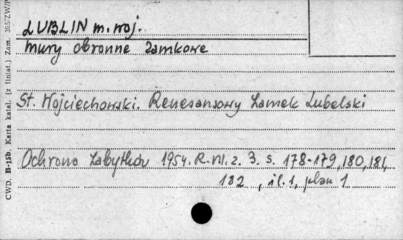 LUBLIN m. woj.
mury obronne zamkowe
St. Wojciechowski. Renesansowy Zamek Lubelski
Ochrona Zabytków 1954. R. VII. z. 3. s. 178-179, 180, 181,
182, il. 1, plan 1
CWD. B-15b. Karta katal. (z liniat.) Zam. 305/ZW/P